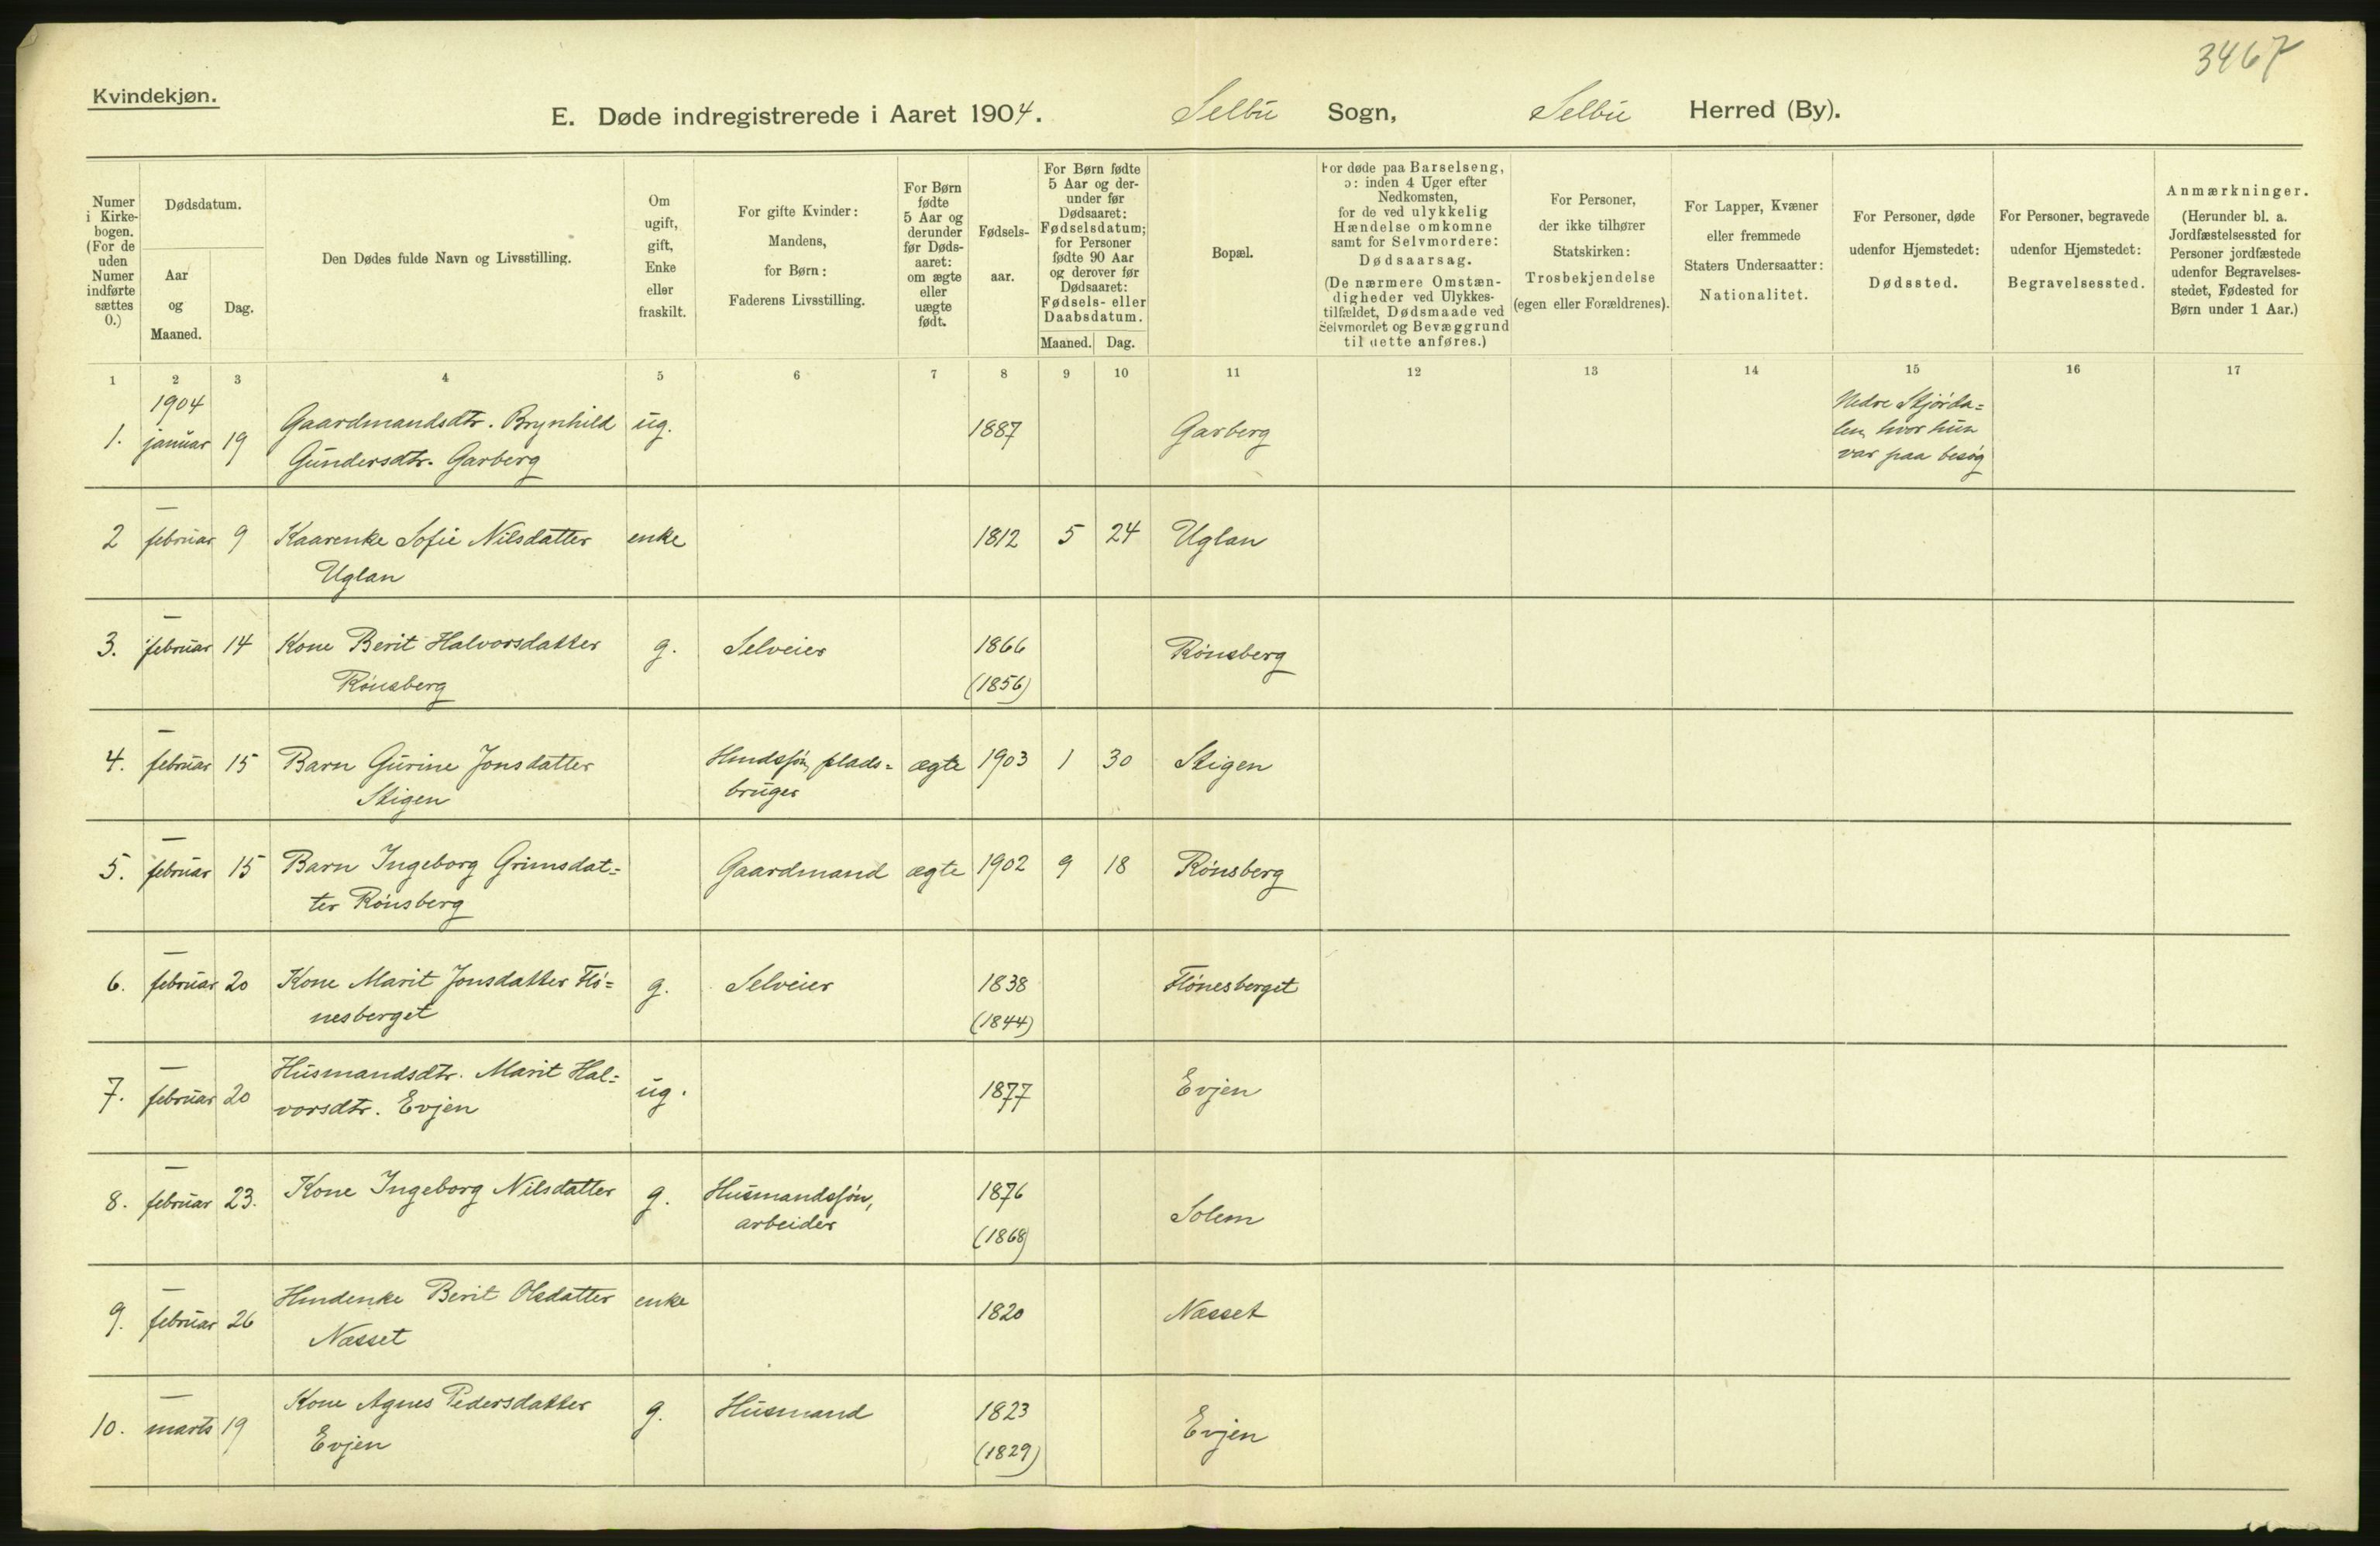 3467
Kvindekjøn.
E. Døde indregistrerede i Aaret 1904. Selbu Sogn, Selbu Herred (By).
Numer i Kirkebogen. (For de uden Numer indførte sættes 0.)
Dødsdatum.
Aar og Maaned.
Dag.
Den Dødes fulde Navn og Livsstilling.
Om ugift, gift, Enke eller fraskilt.
For gifte Kvinder: Mandens, for Børn: Faderens Livsstilling.
For Børn fødte 5 Aar og derunder før Dødsaaret: om ægte eller uægte født.
Fødselsaar.
For Børn fødte 5 Aar og derunder før Dødsaaret: Fødselsdatum; for Personer fødte 90 Aar og derover før Dødsaaret: Fødsels- eller Daabsdatum.
Maaned. Dag.
Bopæl.
For døde paa Barselseng, ɔ: inden 4 Uger efter Nedkomsten, for de ved ulykkelig Hændelse omkomne samt for Selvmordere: Dødsaarsag.
(De nærmere Omstændigheder ved Ulykkestilfældet, Dødsmaade ved Selvmordet og Bevæggrund til dette anføres.)
For Personer, der ikke tilhører Statskirken: Trosbekjendelse (egen eller Forældrenes).
For Lapper, Kvæner eller fremmede Staters Undersaatter: Nationalitet.
For Personer, døde udenfor Hjemstedet: Dødssted.
For Personer, begravede udenfor Hjemstedet: Begravelsessted.
Anmærkninger.
(Herunder bl. a. Jordfæstelsessted for Personer jordfæstede udenfor Begravelsesstedet, Fødested for Børn under 1 Aar.)
1 2 3 4 5 6 7 8 9 10 11 12 13 14 15 16 17
1904
1. januar 19 Gaardmandsdtr. Brynhild ug. 1887 Garberg Nedre Stjørda=
Gundersdtr. Garberg len, hvor hun
var paa besøg
—
2 februar 9 Kaarenke Sofie Nilsdatter enke 1812 5 24 Uglan
Uglan
—
3. februar 14 Kone Berit Halvorsdatter g. Selveier 1866 Rønsberg
Rønsberg (1856)
—
4. februar 15 Barn Gurine Jonsdatter Hmdssøn, plads= ægte 1903 1 30 Stigen
Stigen bruger
—
5. februar 15 Barn Ingeborg Grimsdat= Gaardmand ægte 1902 9 18 Rønsberg
ter Rønsberg
—
6. februar 20 Kone Marit Jonsdatter Flø= g. Selveier 1838 Flønesberget
nesberget (1844)
—
7. februar 20 Husmandsdtr. Marit Hal= ug. 1877 Evjen
vorsdtr. Evjen
—
8. februar 23. Kone Ingeborg Nilsdatter g. Husmandssøn, 1876 Solem
arbeider (1868)
—
9. februar 26 Hmdenke Berit Olsdatter enke 1820 Næsset
Næsset
—
10. marts 19 Kone Agnes Pedersdatter g. Husmand 1823 Evjen
Evjen (1829)